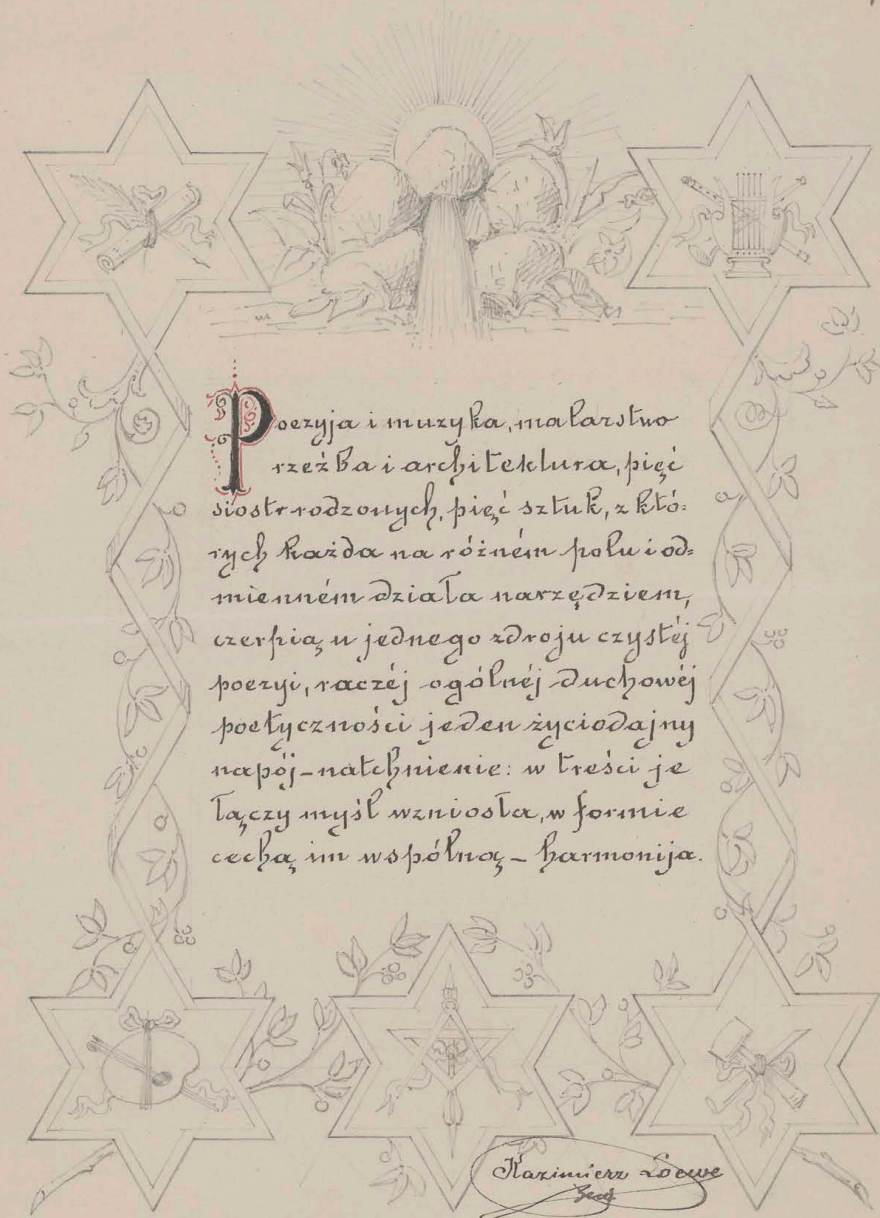 Poezyja i muzyka, malarstwo
rzeźba i architektura, pięć
siostr rodzonych, pięć sztuk, z któ=
rych każda na różném polu i od=
mienném działa narzędziem,
czerpią u jednego zdroju czystéj
poezyi, raczéj ogólnéj duchowéj
poetyczności jeden życiodajny
napój–natchnienie: w treści je
łączy myśl wzniosła, w formie
cechą im wspólną – harmonija.
Kazimierz Loewe